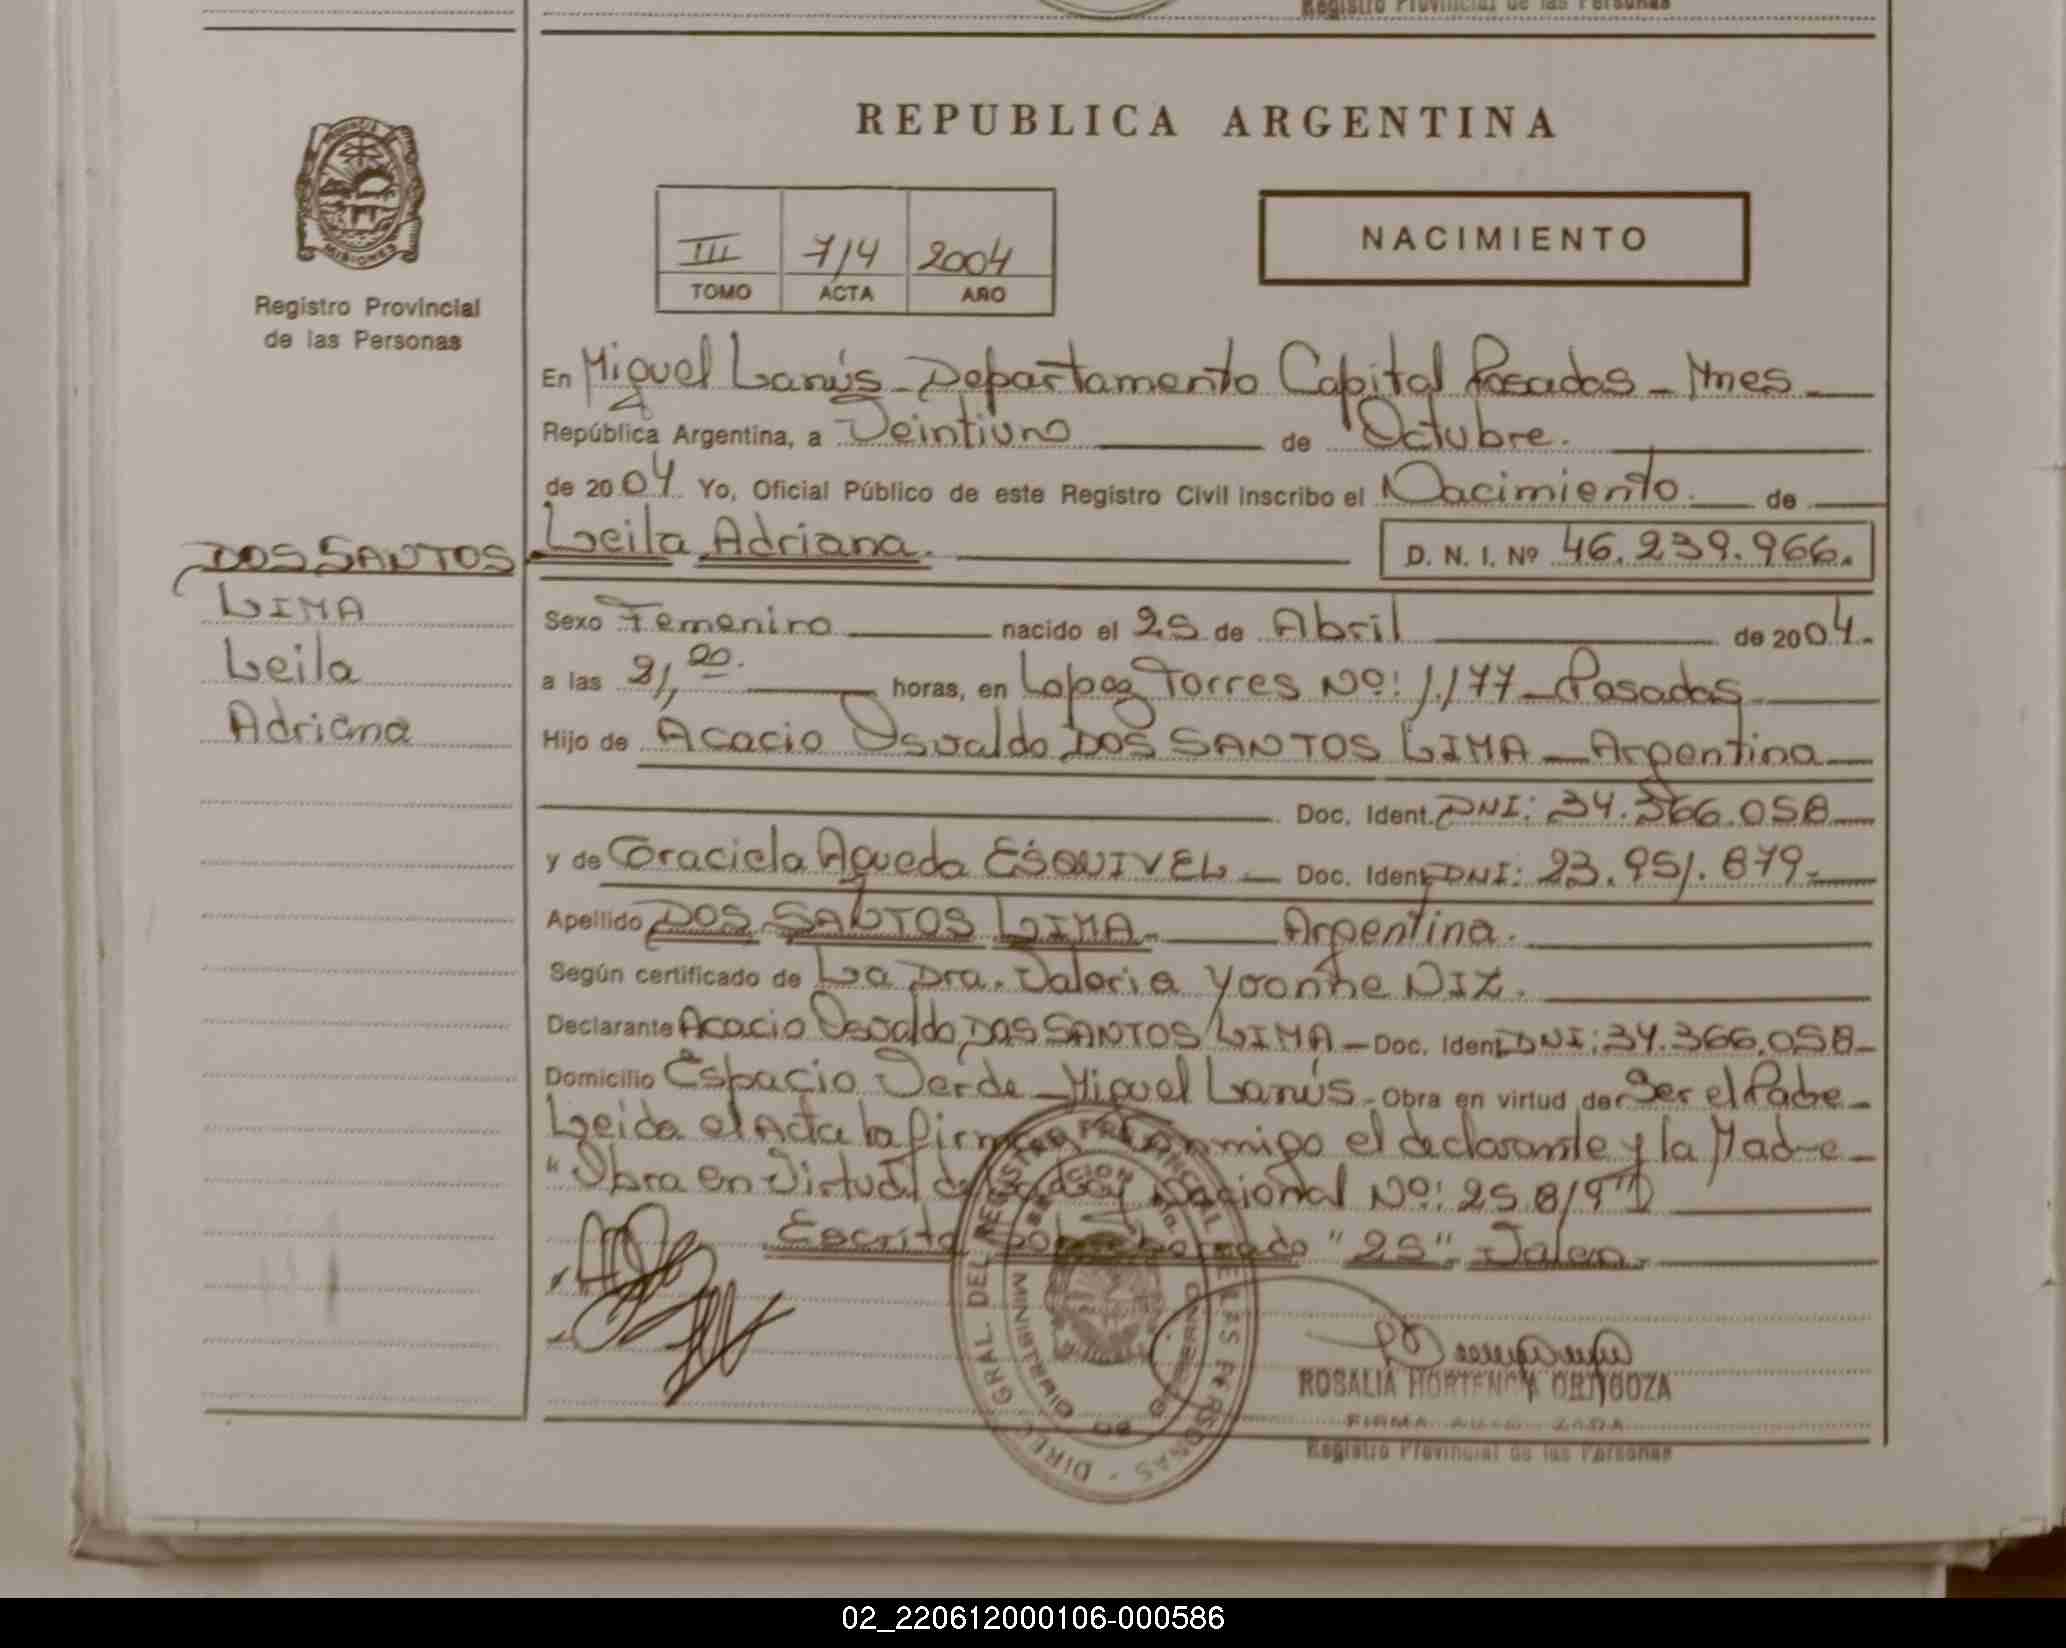 Registro Provincial de las Personas
REPUBLICA ARGENTINA
MISIONES
Registro Provincial
de las Personas
III 714 2004
TOMO ACTA AÑO
NACIMIENTO
En Miguel Lanús - Departamento Capital Posadas - Mnes
República Argentina, a Veintiuno de Octubre.
de 2004 Yo, Oficial Público de este Registro Civil inscribo el Nacimiento. de
DOS SANTOS Leila Adriana. D. N. I. Nº 46.239.966.
LIMA
Leila
Adriana
Sexo Femenino nacido el 25 de Abril de 2004.
a las 21,00. horas, en Lopez Torres Nº: 1.177 - Posadas
Hijo de Acacio Osvaldo DOS SANTOS LIMA - Argentina
Doc. Ident. DNI: 34.366.058
y de Graciela Agueda ESQUIVEL - Doc. Ident DNI: 23.951.879.
Apellido DOS SANTOS LIMA - Argentina.
Según certificado de La Dra. Valeria Yvonne DIZ.
Declarante Acacio Osvaldo DOS SANTOS LIMA - Doc. Ident DNI: 34.366.058 -
Domicilio Espacio Verde - Miguel Lanús - Obra en virtud de Ser el Padre -
Leida el Acta la firman conmigo el declarante y la Madre -
"Obra en Virtud de la Ley Nacional Nº: 25.819"
Escrito sobre borrado "25". Valen.
DIREC. GRAL. DEL REGISTRO PROVINCIAL DE LAS PERSONAS
MINISTERIO DE GOBIERNO
ROSALIA HORTENCIA ORTIGOZA
FIRMA AUTORIZADA
Registro Provincial de las Personas
02_220612000106-000586